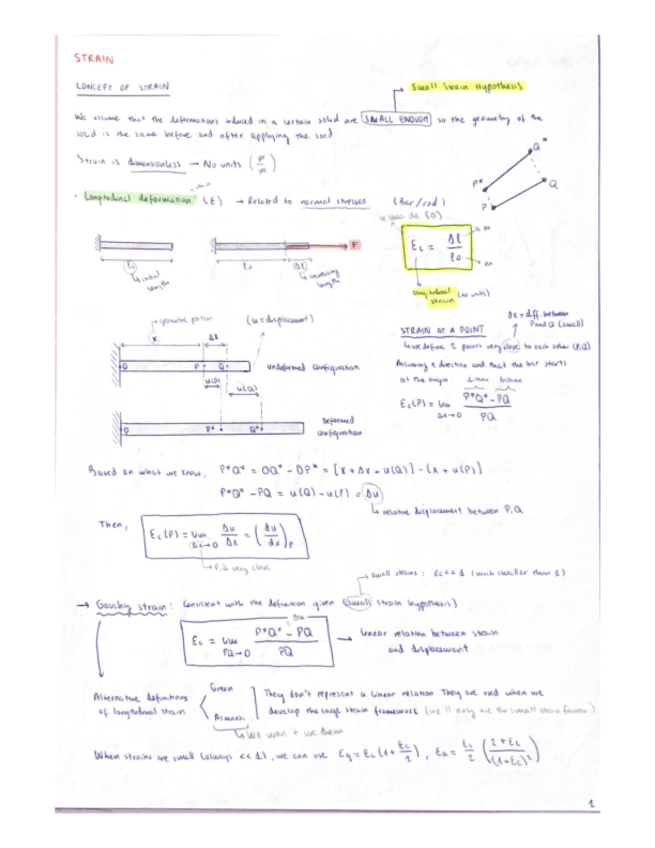 STRAIN
CONCEPT OF STRAIN
Small Strain Hypothesis
We assume that the deformations induced in a certain solid are SMALL ENOUGH so the geometry of the
solid is the same before and after applying the load
Strain is dimensionless → No units (m/m)
P* Q* P Q
· Longitudinal deformation (ε) → Related to normal stresses (Bar/rod)
strain
F
l0 l0 Δl
initial length
increasing length
Ec = Δl / l0
m
m
longitudinal strain (no units)
geometric position
(u = displacement)
x Δx
O P Q
undeformed configuration
u(P) u(Q)
O P* Q*
Deformed configuration
STRAIN AT A POINT
Δx = diff. between P and Q (small)
we define 2 points very close to each other (P,Q)
Assuming x direction and that the bar starts
at the origin.
Ec(P) = lim Δx→0 P*Q* - PQ / PQ
Based on what we know, P*Q* = OQ* - OP* = [x + Δx + u(Q)] - [x + u(P)]
P*Q* - PQ = u(Q) - u(P) = Δu
relative displacement between P,Q
Then, Ec(P) = lim Δx→0 Δu / Δx = (du/dx)P
P,Q very close
small strains: Ec << 1 (much smaller than 1)
→ Cauchy strain: Consistent with the definition given (small strain hypothesis)
Δu
Ec = lim PQ→0 P*Q* - PQ / PQ → linear relation between strain
and displacement
Alternative definitions
of longitudinal strain
Green
Almansi
They don't represent a linear relation. They are used when we
develop the large strain framework (we'll only use the small strain framew.)
We won't use them
When strains are small (always << 1), we can use Eg = Ec(1 + Ec/2), Ea = Ec/2 (2 + Ec / (1+Ec)²)
1